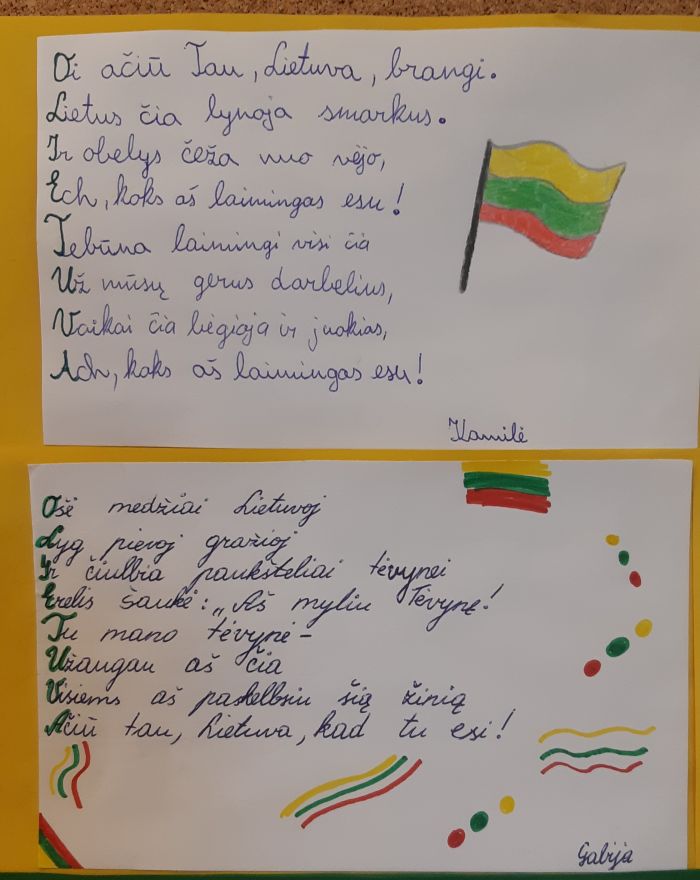 Oi ačiū Tau, Lietuva, brangi.
Lietus čia lynoja smarkus.
Ir obelys čeža nuo vėjo,
Ech, koks aš laimingas esu!
Tebūna laimingi visi čia
Už mūsų gerus darbelius,
Vaikai čia bėgioja ir juokias,
Ach, koks aš laimingas esu!
Kamilė
Ošė medžiai Lietuvoj
Lyg pievoj gražioj
Ir čiulbia paukšteliai tėvynei
Erelis šaukė: „Aš myliu Tėvynę!
Tu mano tėvynė–
Užaugau aš čia
Visiems aš paskelbsiu šią žinią
Ačiū tau, Lietuva, kad tu esi!
Gabija